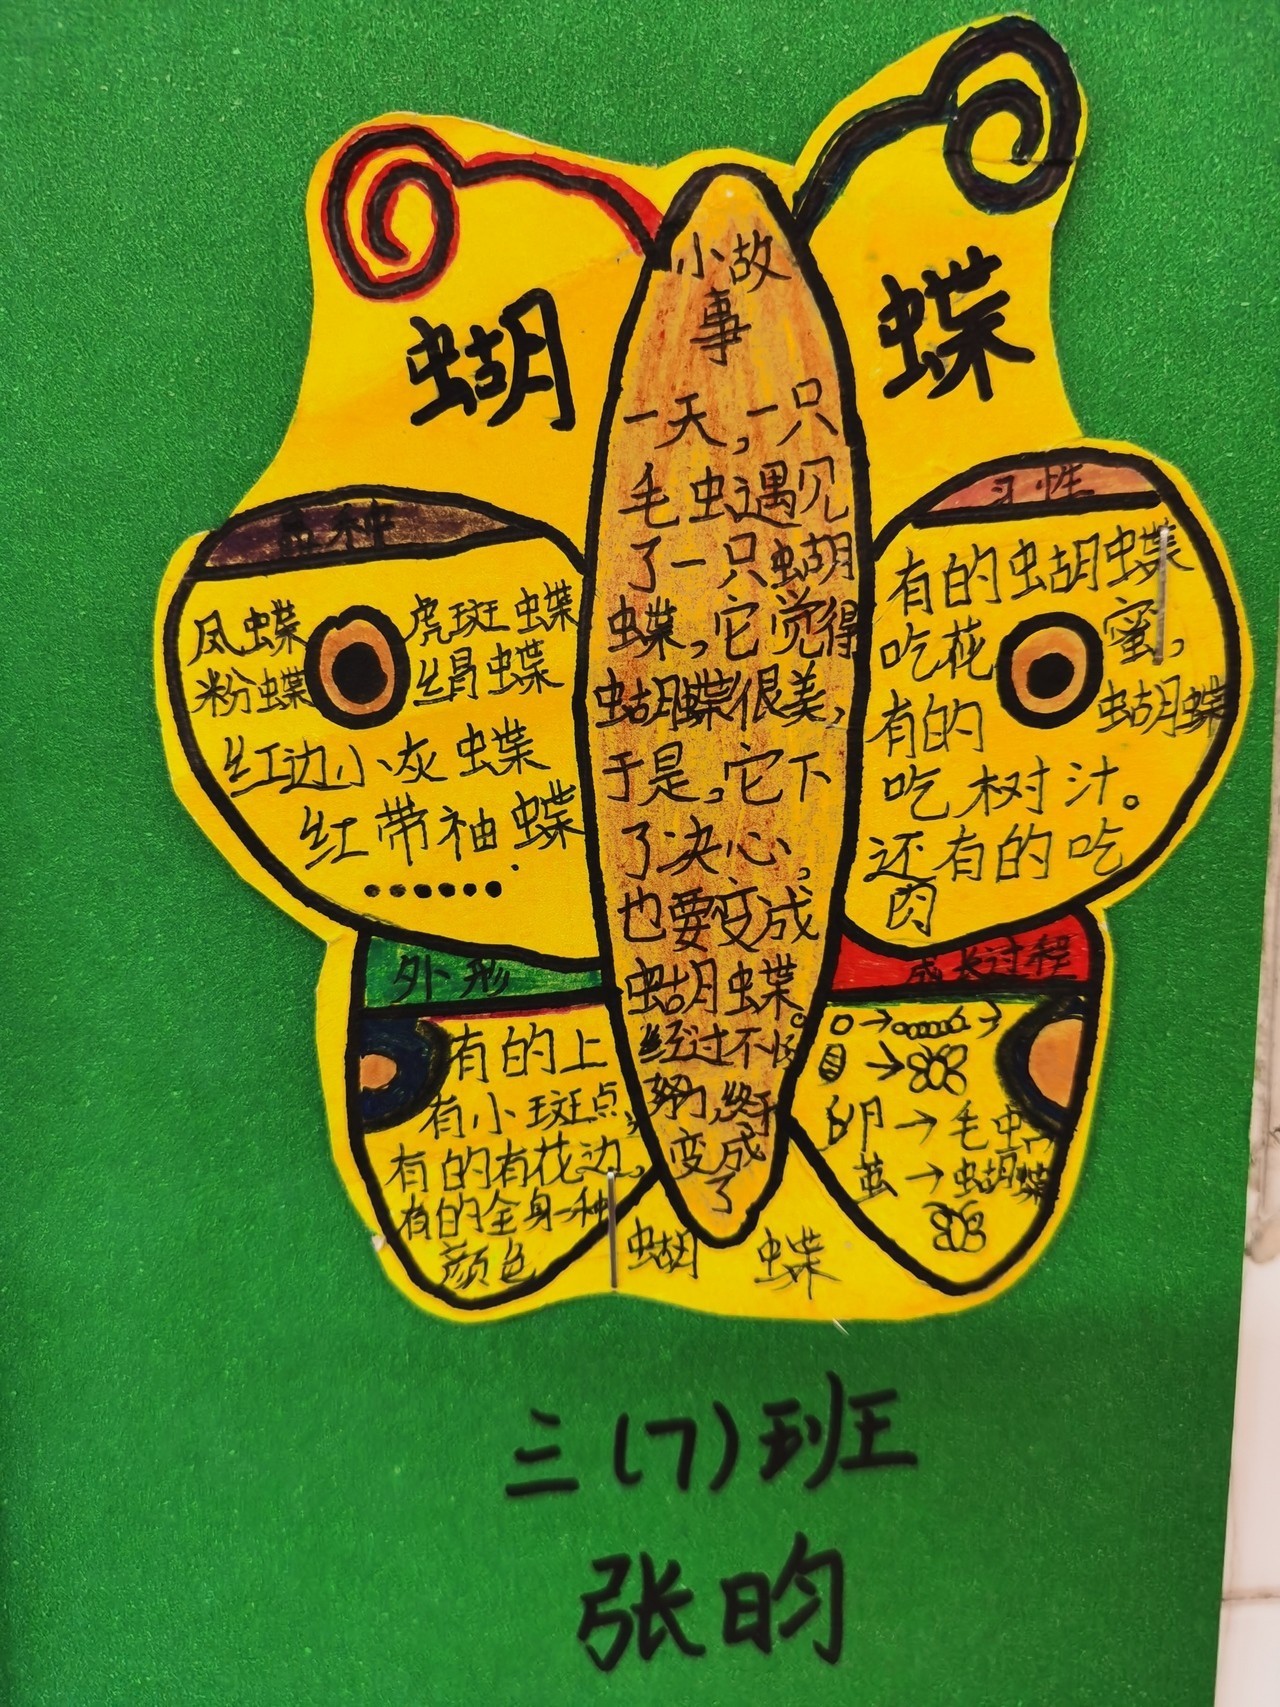 蝴蝶
小故
事
一天，一只
毛虫遇见
了一只蝴
蝶，它觉得
蝴蝶很美，
于是，它下
了决心，
也要变成
蝴蝶。
经过不
努力，终于
变成
了
蝴蝶
品种
凤蝶 虎斑蝶
粉蝶 绢蝶
红边小灰蝶
红带袖蝶
……
习性
有的蝴蝶
吃花蜜，
有的蝴蝶
吃树汁。
还有的吃
肉
外形
有的上
有小斑点，
有的有花边，
有的全身一种
颜色
成长过程
卵→毛虫
茧→蝴蝶
三(7)班
张昀